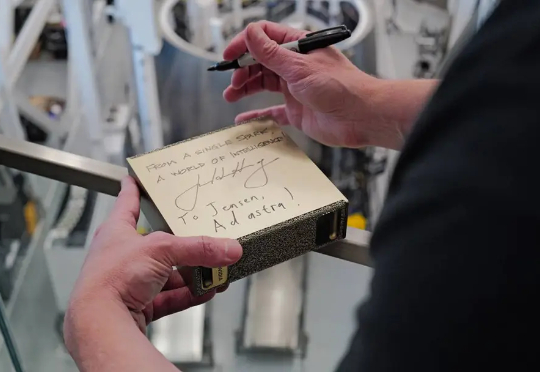 FROM A SINGLE SPARK,
A WORLD OF INTELLIGENCE!
To Jensen,
Ad astra!